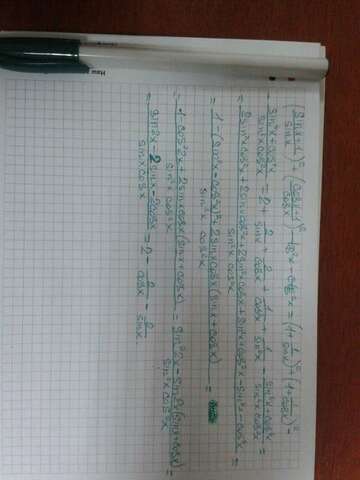 (sinx+1/sinx)² + (cosx+1/cosx)² - tg²x - ctg²x = (1+1/sinx)² + (1+1/cosx)² -
- (sin⁴x+cos⁴x)/(sin²x cos²x) = 2 + 2/sinx + 2/cosx + 1/cos²x + 1/sin²x - (sin⁴x+cos⁴x)/(sin²x cos²x) =
= (2sin²xcos²x + 2sinxcos²x + 2sin²xcosx + sin²x + cos²x - sin⁴x - cos⁴x)/(sin²x cos²x) =
= (1-(sin²x-cos²x)² + 2sinxcosx(sinx+cosx))/(sin²x cos²x) =
= (1-cos²2x+2sinxcosx(sinx+cosx))/(sin²x cos²x) = (sin²2x-sin2x(sinx+cosx))/(sin²x cos²x) =
= (sin2x-2sinx-2cosx)/(sinx cosx) = 2 - 2/cosx - 2/sinx